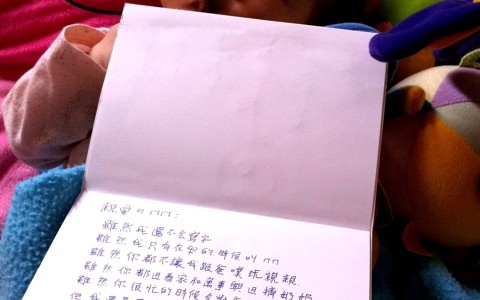 親愛のㄇㄇ:
雖然我還不會寫字
雖然我只有在哭的時候叫ㄇㄇ
雖然你都不讓我跟爸噗親親
雖然你都边看家和萬事興边擠奶奶
雖然你很忙的時候會
但我還是